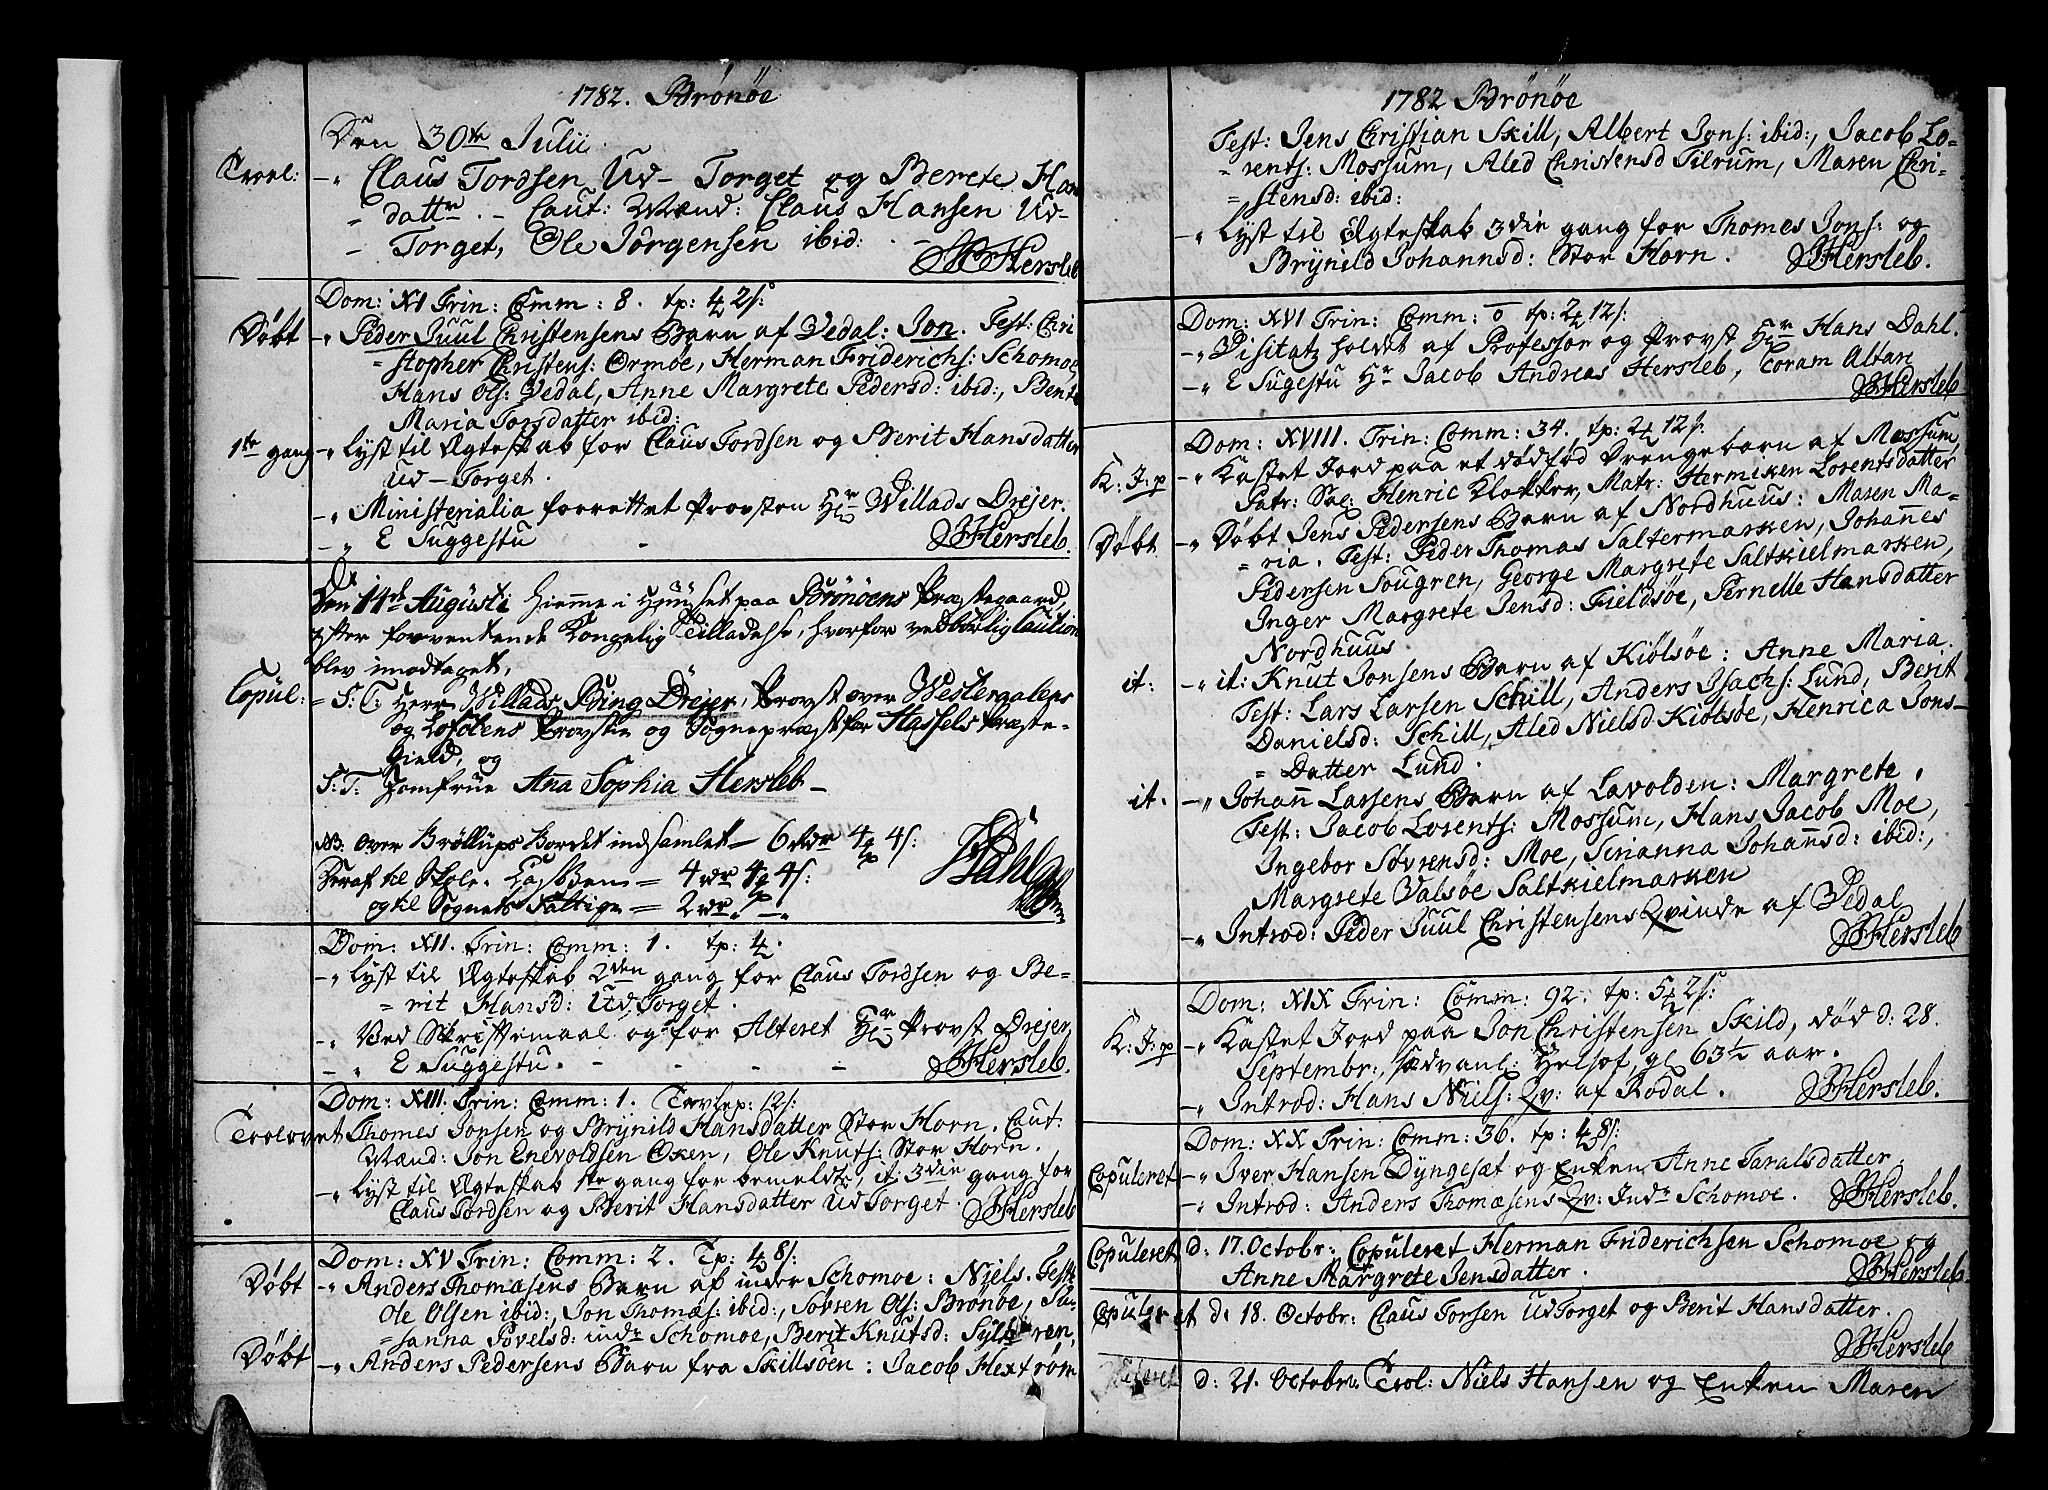 1782. Brönöe
Den 30te Julii
Trol: -" Claus Tordsen Ud-Torget og Berete Han
" dattr. - Caut: Mænd: Claus Hansen Ud-
- Torget, Ole Jörgensen ibid:
JHersleb
Dom: XI Trin: Comm: 8. tp: 4 2s:
Döbt -" Peder Juul Christensens Barn af Vedal: Jon. Test: Chri
= stopher Christens: Ormöe, Herman Friderichs: Schomoe,
Hans Ols: Vedal, Anne Margrete Pedersd: ibid:, Bente
Maria Torsdatter ibid:
1te gang -" Lyst til Ægteskab for Claus Tordsen og Berit Hansdatter
Ud-Torget.
-" Ministerialia forrettet Provsten Hr Willads Drejer.
-" E Suggestu - JHersleb.
Den 14de Augusti hjemme i Huuset paa Brönöens Præstegaard,
efter forventende Kongelig Tilladelse, hvorfor vedbörlig Caution
blev imodtaget,
Copul: = S:T: Herr Willads Bing Drejer, Provst over Westeraalens
og Lofodens Provstie og Sognepræst for Hassels Præste-
gield, og
S:T: Jomfrue Ana Sophia Hersleb -
NB. over Bröllups Bordet indsamlet - 6 rdr 4 4s:
Deraf til Skole-Cassen = 4 rdr 4 4s: Dahl
og til Sognets Fattige = 2 rdr " - "
Dom: XII. Trin: Comm: 1. tp: 4.
-" Lyst til Ægteskab 2den gang for Claus Tordsen og Be-
= rit Hansd: Ud Torget.
-" Ved Skriftemaal og for Alteret Hr Provst Drejer,
-" E Suggestu. - - - - JHersleb.
Dom: XIII. Trin: Comm: 1. Tavlep: 12s:
Trolovet Thomes Jonsen og Brynild Hansdatter Stor Horn. Caut:
Mænd: Jon Enevoldsen Oxen, Ole Knuts: Stor Horn.
-" Lyst til Ægteskab 1te gang for bemeldte, it: 3die gang for
Claus Tordsen og Berit Hansdatter Ud Torget. JHersleb
Dom: XV Trin: Comm: 2. Tp: 4 8s:
Döbt -" Anders Thomæsens Barn af inder Schomoe: Niels. Test:
Ole Olsen ibid:, Jon Thomæs: ibid:, Sövren Ols: Brönöe, Su-
= sanna Povelsd: indr Schomoe, Berit Knutsd:
Döbt -" Anders Pedersens Barn fra Skillsöen: Jacob Hextröm
1782 Brönöe
Test: Jens Christian Skill, Albert Jons: ibid:, Jacob Lo-
= rents: Mossum, Aled Christensd Tilrum, Maren Chri-
= stensd: ibid:
-" Lyst til Ægteskab 3die gang for Thomes Jons: og
Brynild Johannsd: Stor Horn. JHersleb.
Dom: XVI Trin: Comm: 0 tp: 2 12s:
-" Visitatz holdet af Professor og Provst Hr Hans Dahl.
-" E Sugestu Hr Jacob Andreas Hersleb, coram Altare
JHersleb
Dom: XVIII. Trin: Comm: 34. tp: 2 12s:
K: J: p -" Kastet Jord paa et dödföd Drengebarn af Mossum,
Patr: Sac: Henric Klokker, Matr: Hermiken Lorentsdatter
Döbt -" Döbt Jens Pedersens Barn af Nordhuus: Maren Ma-
= ria. Test: Peder Thomas Saltermarken, Johannes
Pedersen Sougren, George Margrete Saltkielmarken,
Inger Margrete Jensd: Fieldsöe, Pernelle Hansdatter
Nordhuus
it: -" it: Knut Jonsens Barn af Kiölsöe: Anne Maria.
Test: Lars Larsen Schill, Anders Isachs: Lund, Berit
Danielsd: Schill, Aled Nielsd Kiölsöe, Henrica Jons-
= Datter Lund.
it. -" Johann Larsens Barn af Lavolden: Margrete.
Test: Jacob Lorents: Mossum, Hans Jacob Moe,
Ingebor Sövrensd: Moe, Serianna Johannsd: ibid:,
Margrete Valsöe Saltkielmarken
-" Introd: Peder Juul Christensens Qvinde af Vedal
JHersleb
Dom: XIX Trin: Comm: 92. tp: 5 2s:
K: J: p -" Kastet Jord paa Jon Christensen Skild, död d: 28.
Septembr:, sædvanl: Helsot, gl 63½ aar.
-" Introd: Hans Niels: Qv: af Rodal. JHersleb.
Dom: XX Trin: Comm: 36. tp: 4 8s:
Copuleret -" Iver Hansen Dyngesæt og Enken Anne Taralsdatter.
-" Introd: Anders Thomæsens Qv: Indr Schomoe. JHersleb.
Copuleret d: 17. Octobr: Copuleret Herman Friderichsen Schomoe og
Anne Margrete Jensdatter. JHersleb
Copuleret d: 18. Octobr: Claus Torsen Ud Torget og Berit Hansdatter.
JHersleb
d: 21. Octobr: Trol: Niels Hansen og Enken Maren